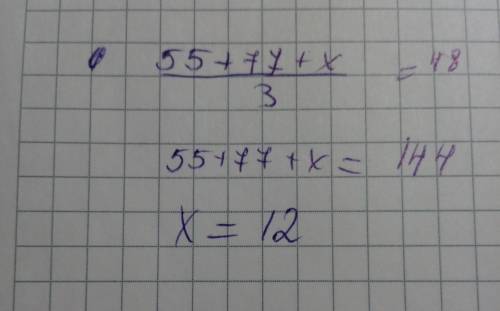 55+77+x = 48
3
55+77+x = 144
x = 12